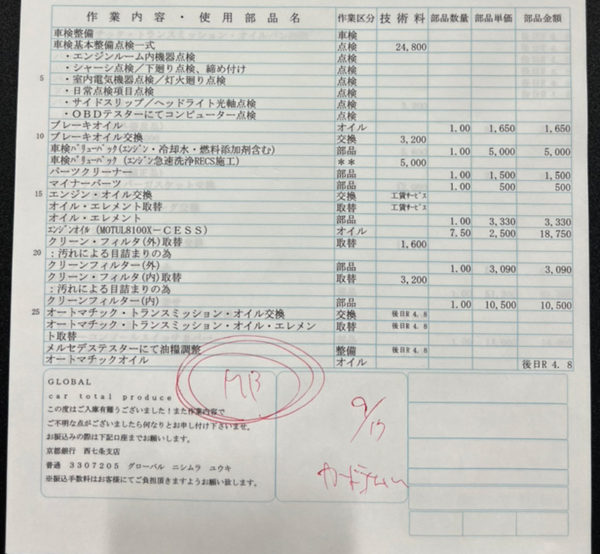 作業内容・使用部品名 作業区分 技術料 部品数量 部品単価 部品金額
車検整備 車検
車検基本整備点検一式 点検 24,800
・エンジンルーム内機器点検 点検
・シャーシ点検／下廻り点検、締め付け 点検
5 ・室内電気機器点検／灯火廻り点検 点検
・日常点検項目点検 点検
・サイドスリップ／ヘッドライト光軸点検 点検
・OBDテスターにてコンピューター点検 点検
ブレーキオイル オイル 1.00 1,650 1,650
10 ブレーキオイル交換 交換 3,200
車検ﾊﾞﾘｭｰﾊﾟｯｸ(ｴﾝｼﾞﾝ・冷却水・燃料添加剤含む) 部品 1.00 5,000 5,000
車検ﾊﾞﾘｭｰﾊﾟｯｸ (ｴﾝｼﾞﾝ急速洗浄RECS施工) ** 5,000
パーツクリーナー 部品 1.00 1,500 1,500
マイナーパーツ 部品 1.00 500 500
15 エンジン・オイル交換 交換 工賃ｻｰﾋﾞｽ
オイル・エレメント取替 取替 工賃ｻｰﾋﾞｽ
オイル・エレメント 部品 1.00 3,330 3,330
ｴﾝｼﾞﾝｵｲﾙ (MOTUL8100X－CESS) オイル 7.50 2,500 18,750
クリーン・フィルタ(外)取替 取替 1,600
20 :汚れによる目詰まりの為
クリーンフィルター(外) 部品 1.00 3,090 3,090
クリーン・フィルタ(内)取替 取替 3,200
:汚れによる目詰まりの為
クリーンフィルター(内) 部品 1.00 10,500 10,500
25 オートマチック・トランスミッション・オイル交換 交換 後日R4.8
オートマチック・トランスミッション・オイル・エレメン 取替 後日R4.8
ト取替
メルセデステスターにて油糧調整 整備 後日R4.8
オートマチックオイル オイル 後日R4.8
GLOBAL
car total produce
この度はご入庫有難うございました！また作業内容で
ご不明な点がございましたら何なりとお申し付け下さいませ。
お振込みの際は下記口座までお願いします。
京都銀行 西七条支店
普通 3307205 グローバル ニシムラ ユウキ
※振込手数料はお客様にてご負担頂きますようお願い致します。
MB
9/17